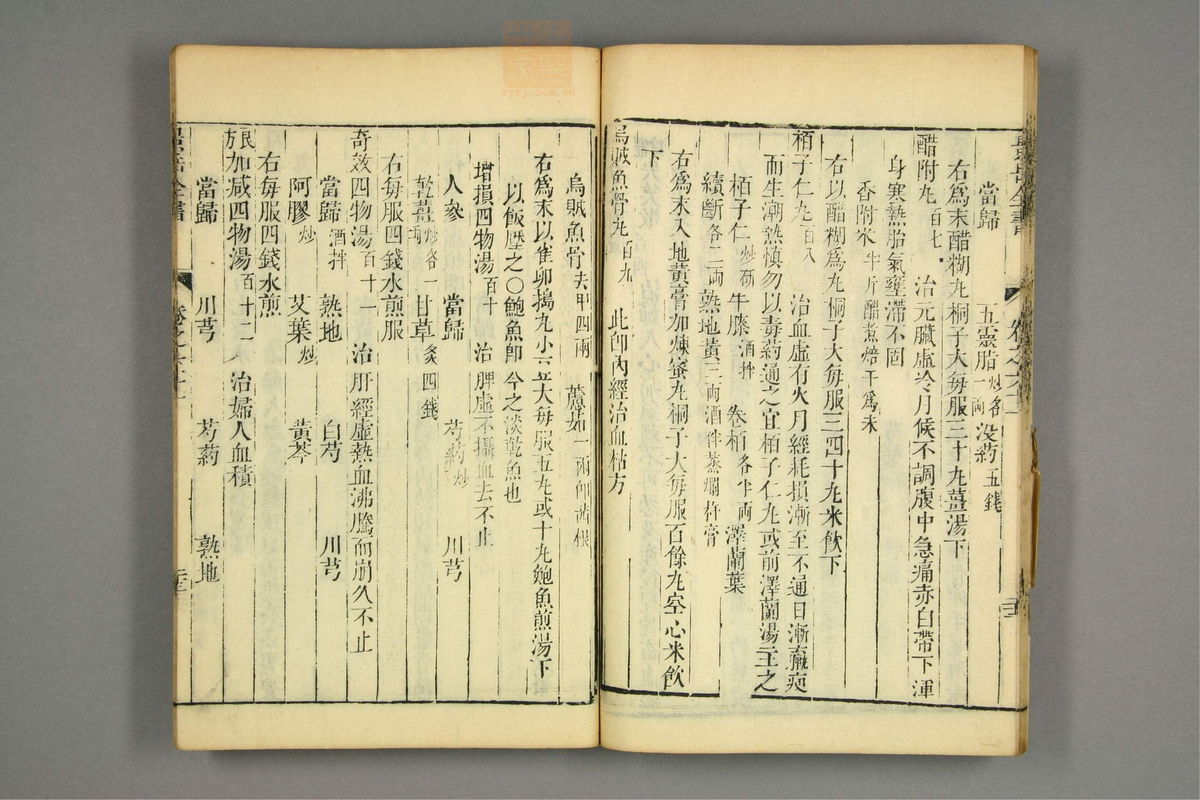 當歸 五靈脂炒各一兩 没藥五錢
右爲末醋糊丸桐子大每服三十丸薑湯下
醋附丸百七 治元臟虛冷月候不調腹中急痛赤白帶下渾
身寒熱胎氣壅滯不固
香附米半斤醋煮焙干爲末
右以醋糊爲丸桐子大每服三四十丸米飲下
栢子仁丸百八 治血虛有火月經耗損漸至不通日漸羸瘦
而生潮熱慎勿以毒藥通之宜栢子仁丸或前澤蘭湯主之
栢子仁炒研 牛膝酒拌 卷栢各半兩 澤蘭葉
續斷各二兩 熟地黃三兩酒拌蒸爛杵膏
右爲末入地黃膏加煉蜜丸桐子大每服百餘丸空心米飲
下
烏賊魚骨丸百九 此卽內經治血枯方
烏賊魚骨去甲四兩 藘茹一兩卽茜根
右爲末以雀卵搗丸小豆大每服五丸或十丸鮑魚煎湯下
以飯壓之○鮑魚卽今之淡乾魚也
增損四物湯百十 治脾虛不攝血去不止
人參 當歸 芍藥炒 川芎
乾薑炒各一兩 甘草炙四錢
右每服四錢水煎服
奇效四物湯百十一 治肝經虛熱血沸騰而崩久不止
當歸酒拌 熟地 白芍 川芎
阿膠炒 艾葉炒 黃芩
右每服四錢水煎
良方加减四物湯百十二 治婦人血積
當歸 川芎 芍藥 熟地